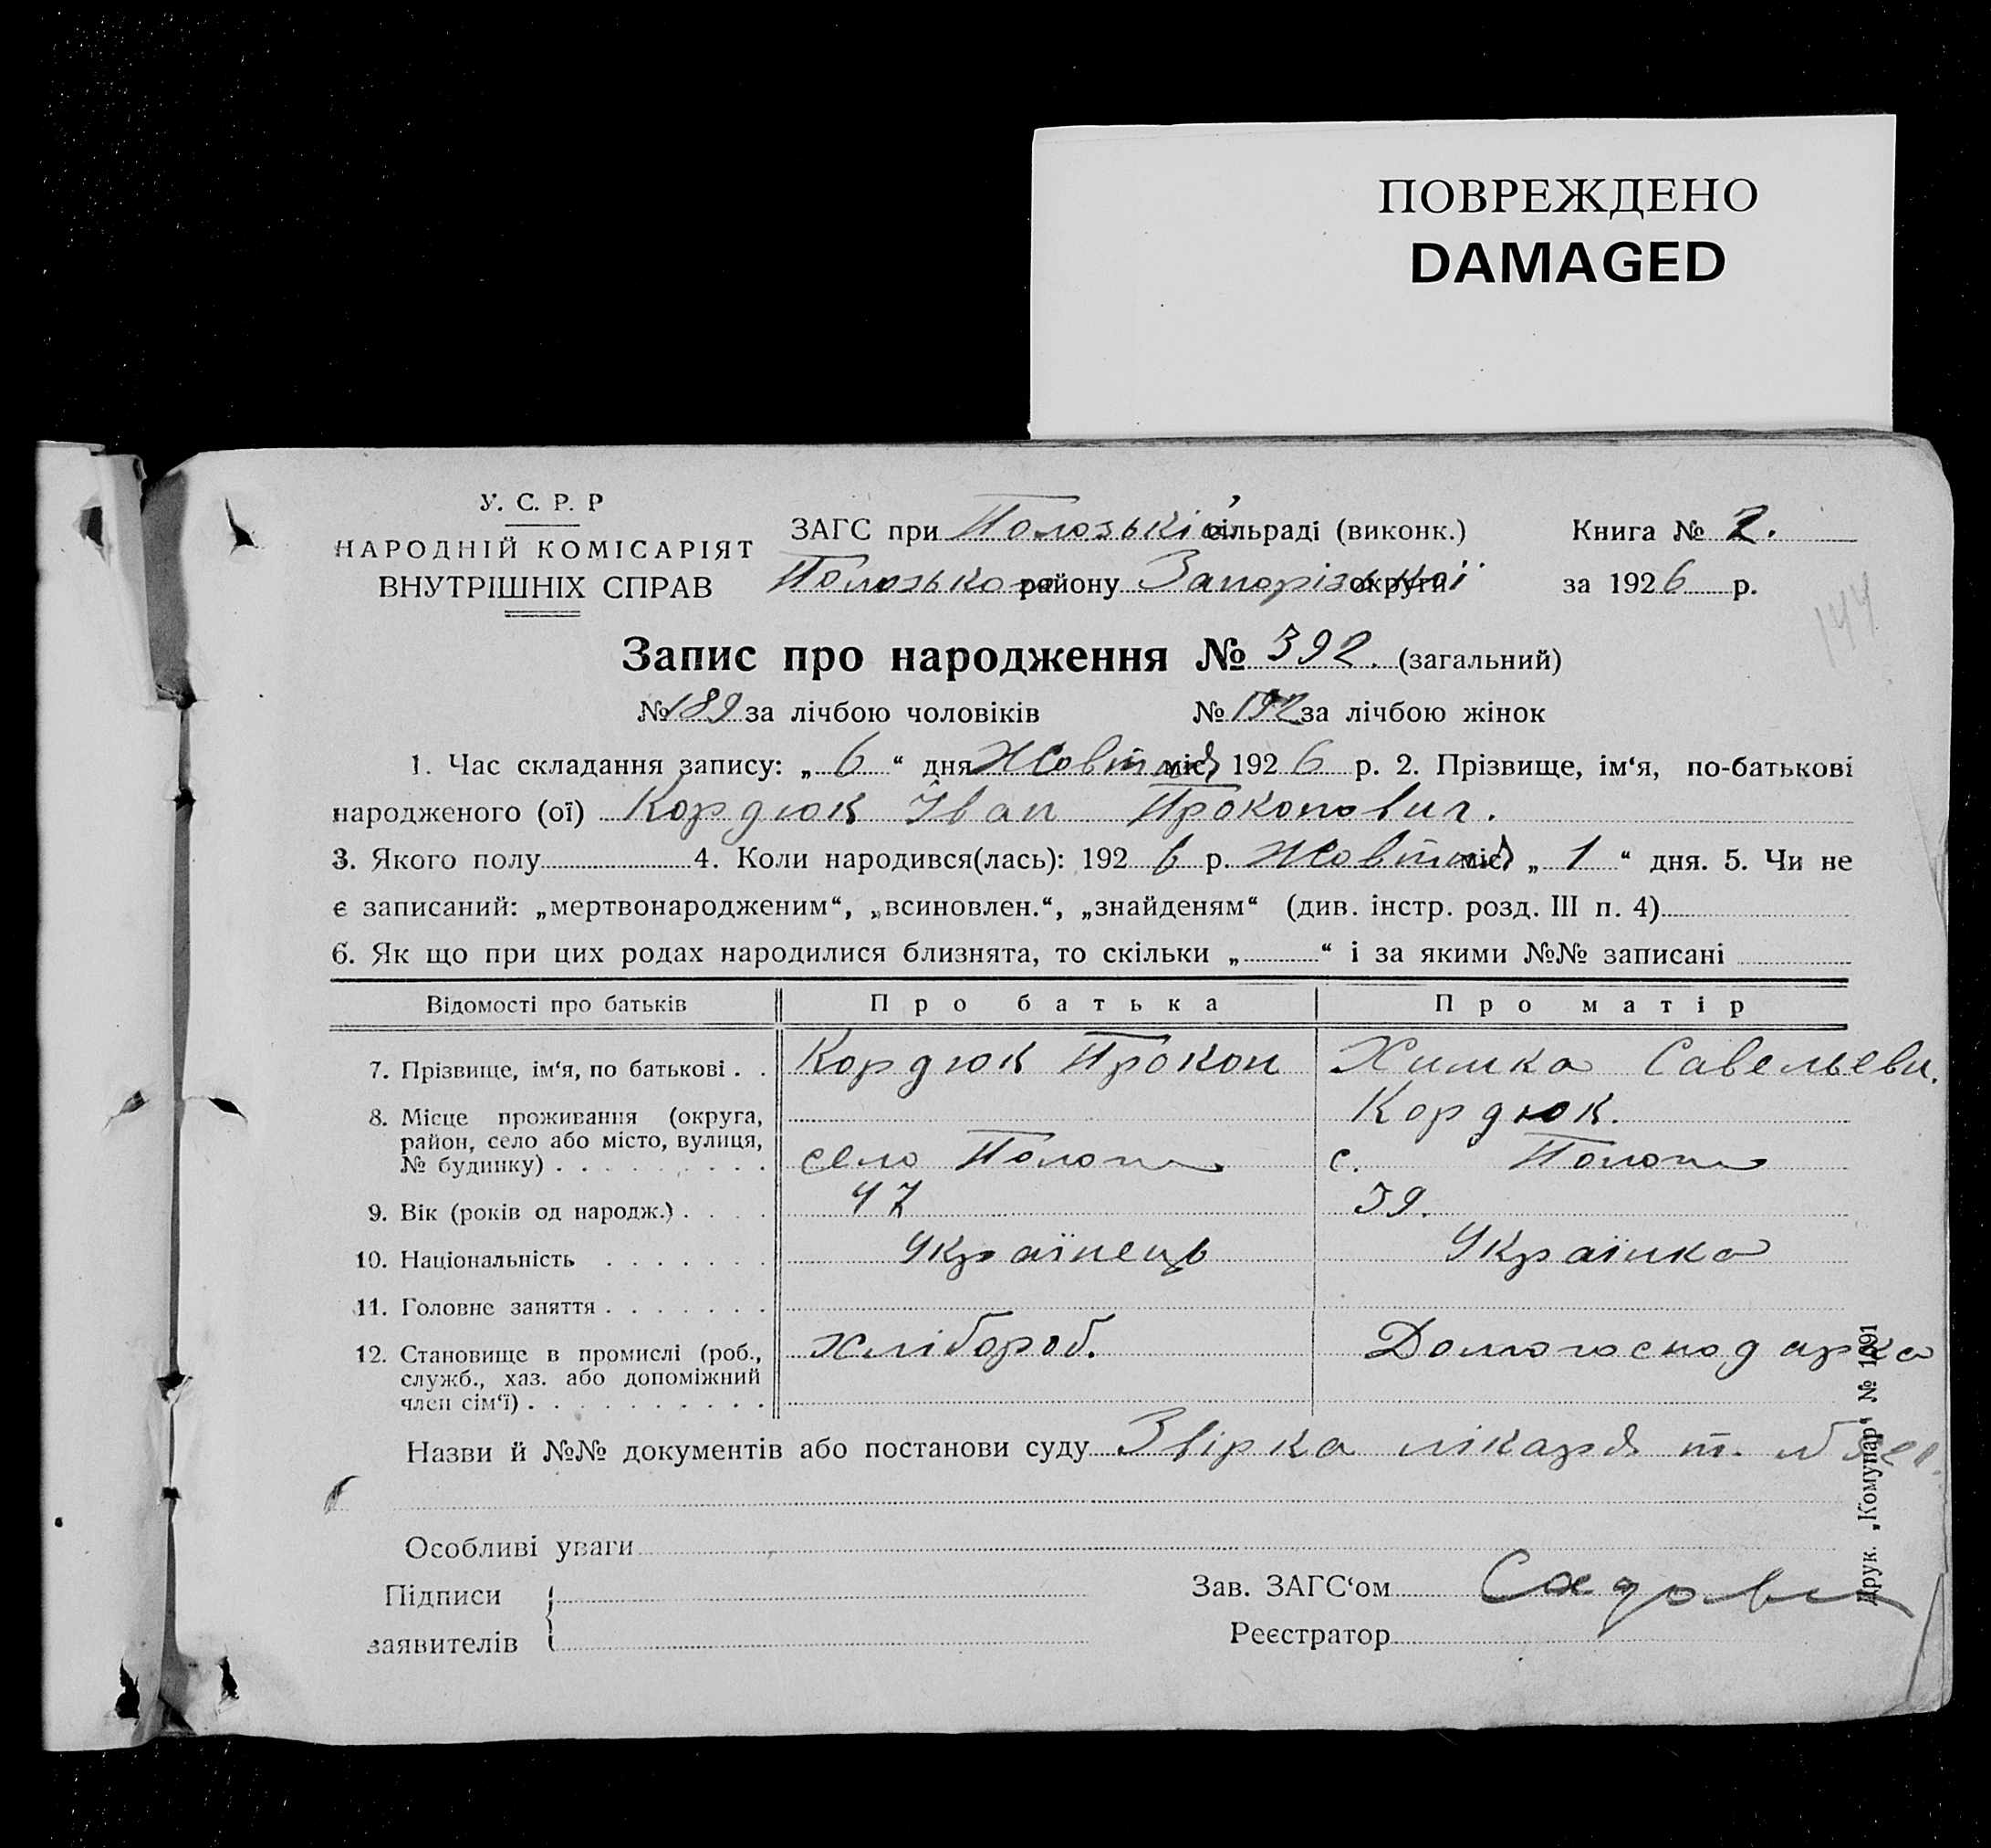 ПОВРЕЖДЕНО
DAMAGED
У. С. Р. Р
НАРОДНІЙ КОМІСАРІЯТ
ВНУТРІШНІХ СПРАВ
ЗАГС при Полозькій сільраді (виконк.)
Полозького району Запорізької округи
Книга № 2.
за 1926 р.
144
Запис про народження № 392. (загальний)
№ 189 за лічбою чоловіків № 192 за лічбою жінок
1. Час складання запису: „ 6 “ дня Жовтня міс. 1926 р. 2. Прізвище, ім‘я, по-батькові
народженого (ої) Кордюк Іван Прокопович.
3. Якого полу 4. Коли народився(лась): 1926 р. Жовтня міс. „ 1 “ дня. 5. Чи не
є записаний: „мертвонародженим“, „всиновлен.“, „знайденям“ (див. інстр. розд. III п. 4)
6. Як що при цих родах народилися близнята, то скільки „ “ і за якими №№ записані
Відомості про батьків Про батька Про матір
7. Прізвище, ім‘я, по батькові . . Кордюк Прокоп Химка Савельевн.
Кордюк.
8. Місце проживання (округа,
район, село або місто, вулиця,
№ будинку) . . . . . . . . . село Пологи с. Пологи
9. Вік (років од народж.) . . . . 47 39.
10. Національність . . . . . . . Українець Українка
11. Головне заняття . . . . . . .
12. Становище в промислі (роб.,
служб., хаз. або допоміжний
член сім‘ї) . . . . . . . . . . хлібороб. Домогосподарка
Назви й №№ документів або постанови суду Звірка лікаря т.
Особливі уваги
Підписи
заявителів
Зав. ЗАГС‘ом
Реєстратор
Друк. „Комунар“ № 1091